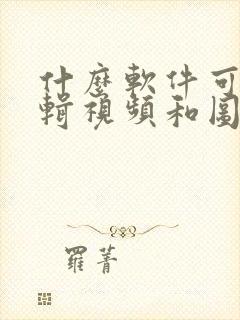 什麽軟件可
輯視頻和圖
羅菁